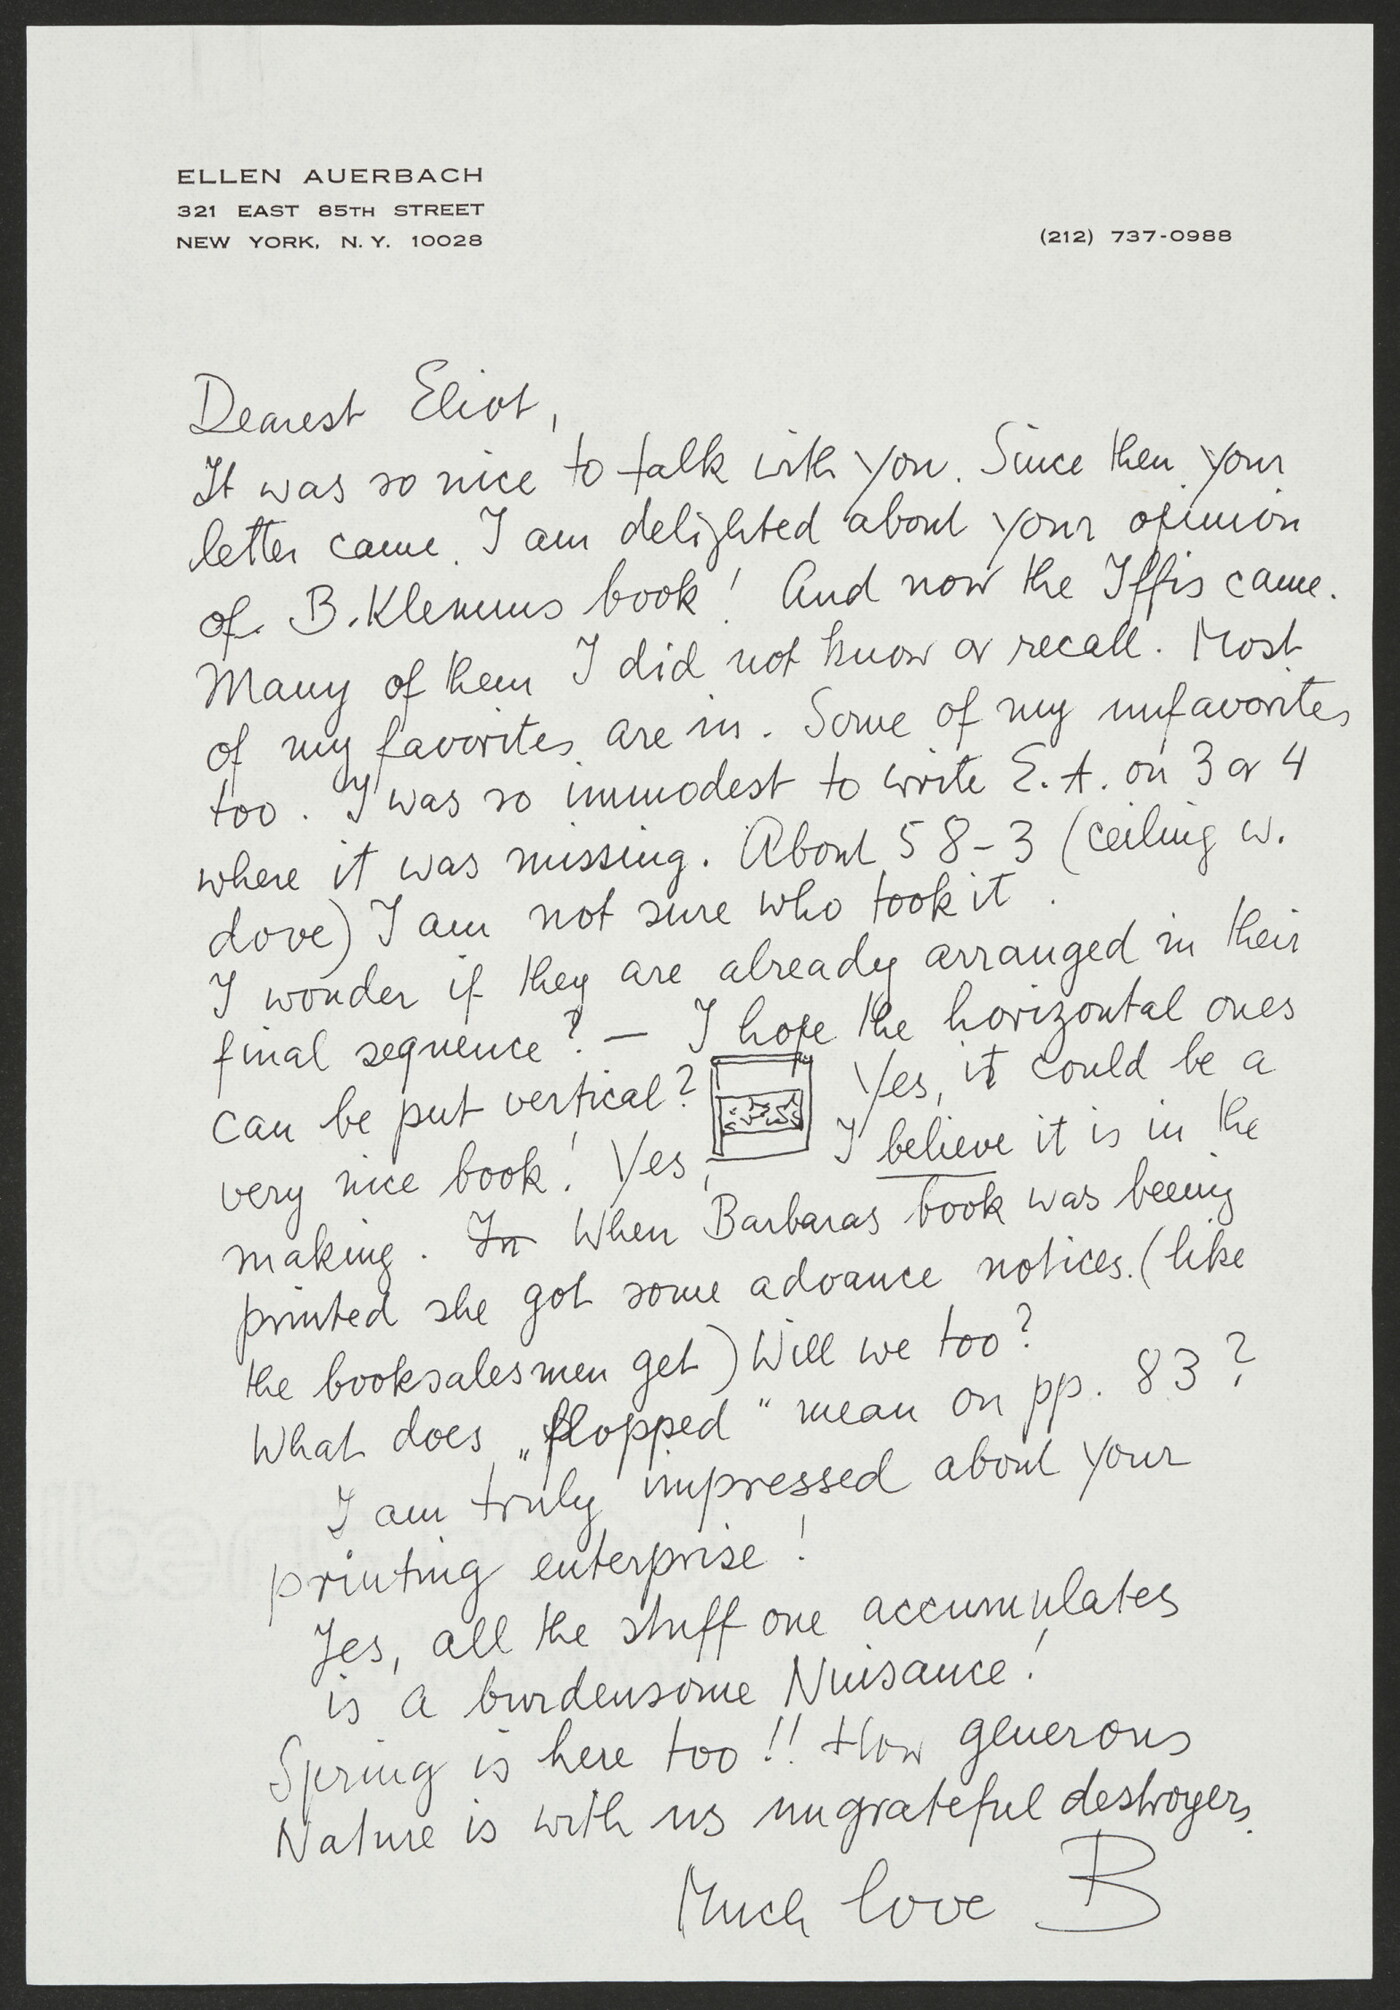 ELLEN AUERBACH
321 EAST 85TH STREET
NEW YORK, N.Y. 10028
(212) 737-0988
Dearest Eliot,
It was so nice to talk with you. Since then your
letter came. I am delighted about your opinion
of B. Klemms book! And now the came.
Many of them I did not know or recall. Most
of my favorites are in. Some of my unfavorites
too. I was so immodest to write E.A. on 3 or 4
where it was missing. About 58-3 (ceiling w.
dove) I am not sure who took it.
I wonder if they are already arranged in their
final sequence? — I hope the horizontal ones
can be put vertical? Yes, it could be a
very nice book! Yes, I believe it is in the
making. In When Barbaras book was beeing
printed she got some advance notices. (like
the booksalesmen get) Will we too?
What does „flopped" mean on pp. 83?
I am truly impressed about your
printing enterprise!
Yes, all the stuff one accumulates
is a burdensome Nuisance!
Spring is here too!! How generous
Nature is with us ungrateful destroyers.
Much love B